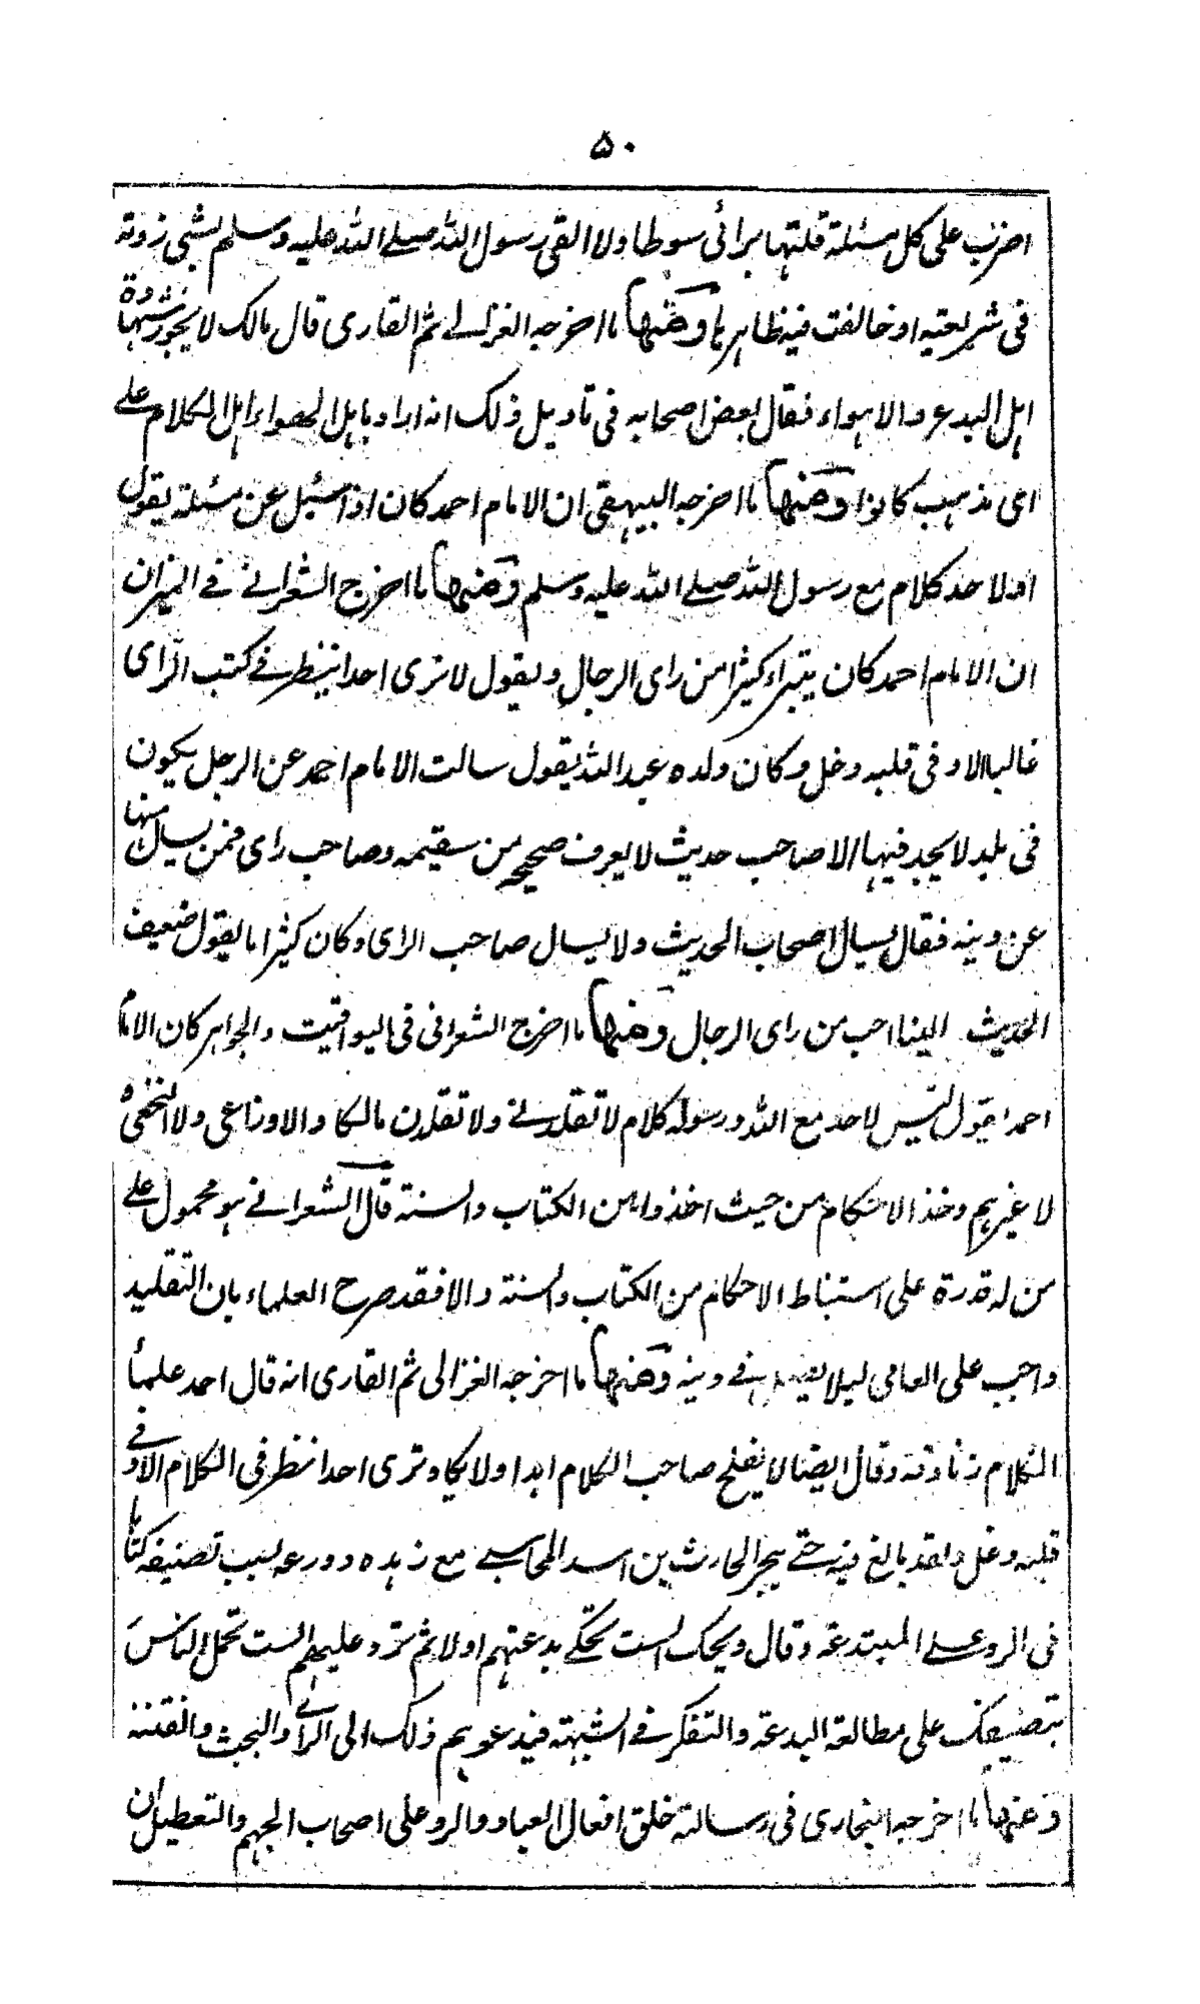 ۵۰
اضرب على كل مسئلة قلتها برائى سوطا ولا القى رسول الله صلے الله عليه وسلم بشىء زدته
فى شريعته او خالفت فيه ظاهرها ومنها ما اخرجه الغزالے ثم القارى قال مالك لا يجوز شهادة
اهل البدع والاهواء فقال بعض اصحابه فى تاويل ذلك انه اراد باهل الهواء اهل الكلام علے
اى مذهب كانوا ومنها ما اخرجه البيهقى ان الامام احمد كان اذا سئل عن مسئلة يقول
اولاحد كلام مع رسول الله صلے الله عليه وسلم ومنها ما اخرج الشعرانے فے الميزان
ان الامام احمد كان يتبراء كثيرا من راى الرجال ويقول لا ترى احدا ينظر فے كتب الراى
غالبا الا وفى قلبه دخل وكان ولده عبد الله يقول سالت الامام احمد عن الرجل يكون
فى بلد لا يجد فيها الا صاحب حديث لا يعرف صحيحه من سقيمه وصاحب راى فمن يسال منها
عن دينه فقال يسال اصحاب الحديث ولا يسال صاحب الراى وكان كثيرا ما يقول ضعيف
الحديث الينا احب من راى الرجال ومنها ما اخرج الشعرانى فى اليواقيت والجواهر كان الامام
احمد يقول ليس لاحد مع الله ورسوله كلام لا تقلدنے ولا تقلدن مالكا ولا اوزاعى ولا النخعى و
لا غيرهم وخذ الاحكام من حيث اخذوا من الكتاب والسنة قال الشعرانے هو محمول علے
من له قدرة على استنباط الاحكام من الكتاب والسنة والا فقد صرح العلماء بان التقليد
واجب على العامى ليلا يضل فے دينه ومنها ما اخرجه الغزالى ثم القارى انه قال احمد علماء
الكلام زنادقة وقال ايضا لا يفلح صاحب الكلام ابدا ولا يكاد ترى احدا نظر فى الكلام الا وفے
قلبه دغل ولقد بالغ فيه حتے هجر الحارث بن اسد المحاسبے مع زهده وورعه بسبب تصنيفه كتابا
فى الرد علے المبتدعة وقال ويحك الست تحكے بدعتهم اولا ثم ترد عليهم الست تحمل الناس
بتصنيفك على مطالعة البدعة والتفكر فے الشبهة فيدعوهم ذلك الى الراے والبحث والفتنة
ومنها ما اخرجه البخارى فى رسالة خلق افعال العباد والرد على اصحاب الجهم والتعطيل ان